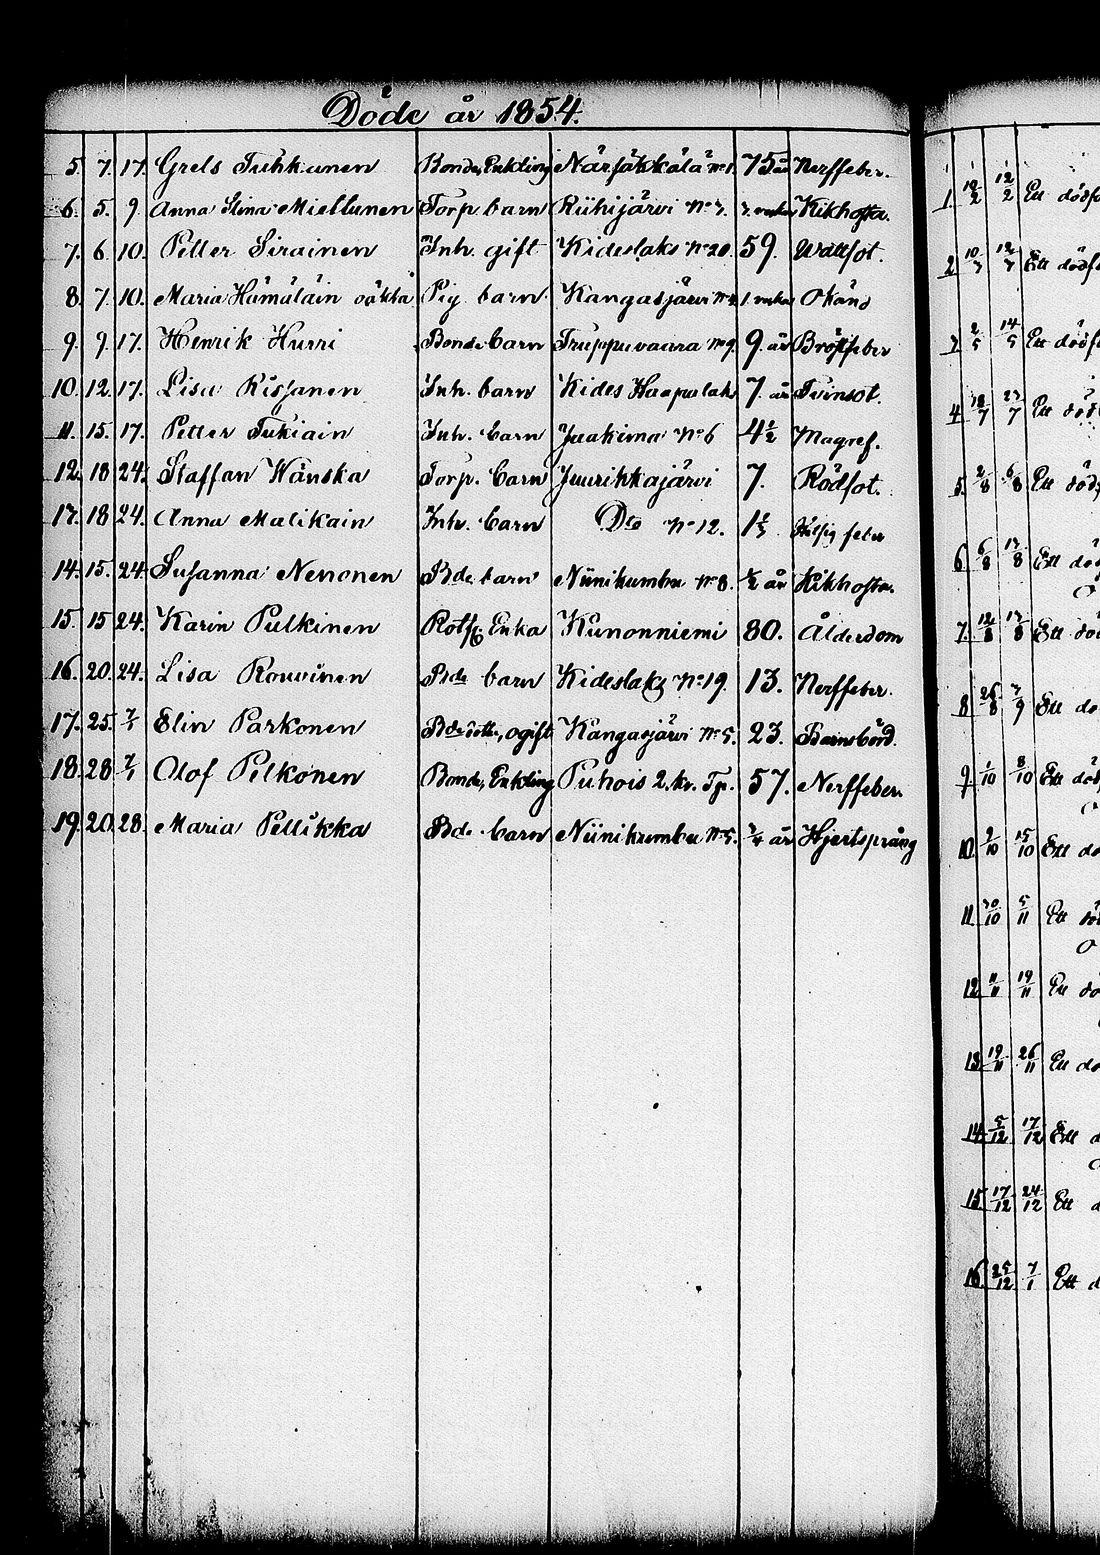 Döde år 1854.
5. 7. 17. Grels Tuhkunen Bonde, Enkling Närsäkkälä No 1. 75 år Nerffeber.
6. 5. 9. Anna Stina Miettunen Torp. barn Riihijärvi No 3. 3. veckor Kikhosta.
7. 6. 10. Petter Sirainen Inh. gift Kideslaks No 20. 59. Wattsot.
8. 7. 10. Maria Hämäläin oäkta Pig. barn Kangasjärvi No 2. 1. vecka Okänd
9. 9. 17. Henrik Hurri Bonde barn Truppuvaara No 9. 9. år Bröstfeber
10. 12. 17. Lisa Rissanen Inh. barn Kides Haapalaks 7. år Tvinsot.
11. 15. 17. Petter Tukiain Inh. barn Jaakima No 6 4 1/2 Magref.
12. 18 24. Staffan Wänska Torp. barn Juurikkajärvi 7. Rödsot.
13. 18 24. Anna Malikain Inh. barn Dto No 12. 1 1/3 feber
14. 15. 24. Susanna Nenonen Bde barn Niinikumbu No 8. 1/2 år Kikhosta.
15. 15 24. Karin Pulkinen Enka Kunonniemi 80. Ålderdom
16. 20. 24. Lisa Rouvinen Bde barn Kideslaks No 19. 13. Nerffeber.
17. 25. 7/1 Elin Parkonen Bde dotter, ogift Kangasjärvi No 5. 23. Barnsbörd.
18. 28 7/1 Olof Pelkonen Bonde, Enkling Puhois 2. kv. Tp. 57. Nerffeber.
19. 20. 28. Maria Pellikka Bde. barn Niinikumbu No 5. 3/4 år Hjertsprång
1. 12/2 Ett dödf
2. 10/3 12/3 Ett dödf
3. 2/5 14/5 Ett dödf
4. 18/7 23/7 Ett död
5. 2/8 6/8 Ett död
6. 6/8 13/8 Ett dö
7. 12/8 13/8 Ett dö
8. 26/8 3/9 Ett dö
9. 1/10 8/10 Ett död
10. 2/10 15/10 Ett dö
11. 30/10 5/11 Ett dö
12. 11/11 19/11 Ett dö
13. 19/11 26/11 Ett dö
14. 5/12 17/12 Ett d
15. 17/12 24/12 Ett d
16. 25/12 7/1 Ett d